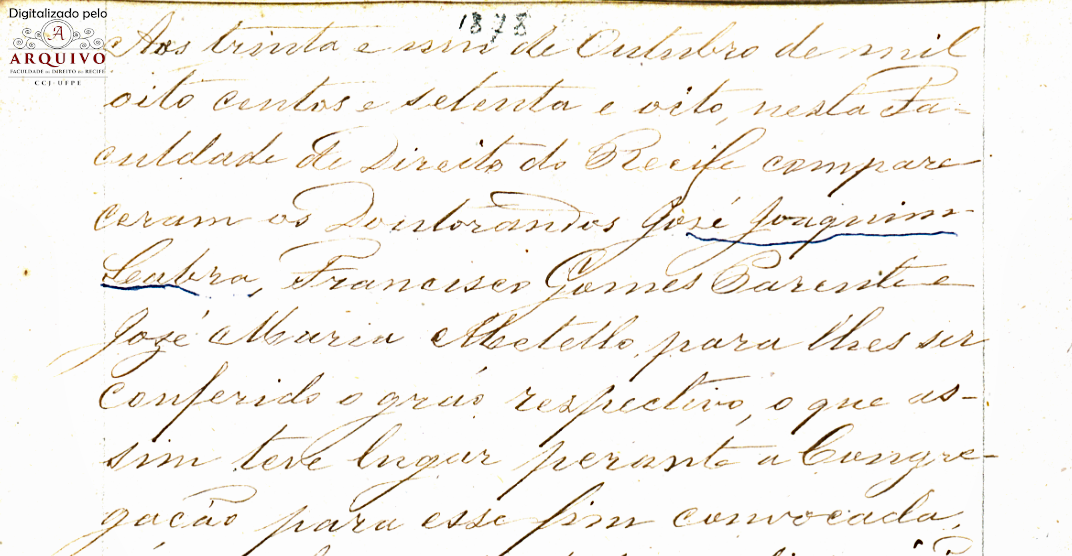 Digitalizado pelo
A
ARQUIVO
FACULDADE DE DIREITO DO RECIFE
CCJ-UFPE
1878
Aos trinta e um de Outubro de mil
oito centos e setenta e oito, nesta Fa-
culdade de Direito do Recife compare
ceram os Doutorandos José Joaquim
Seabra, Francisco Gomes Parente e
José Maria Metello, para lhes ser
conferido o gráo respectivo, o que as-
sim teve lugar perante a Congre-
gação para esse fim convocada,